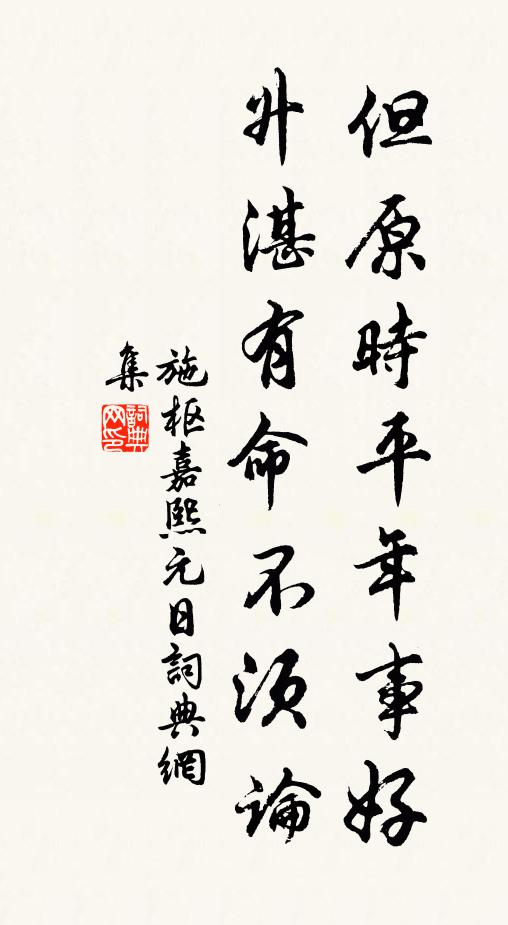 但原時平年事好
升湛有命不須論
施枢嘉熙元日詞典網
集
詞典
网印